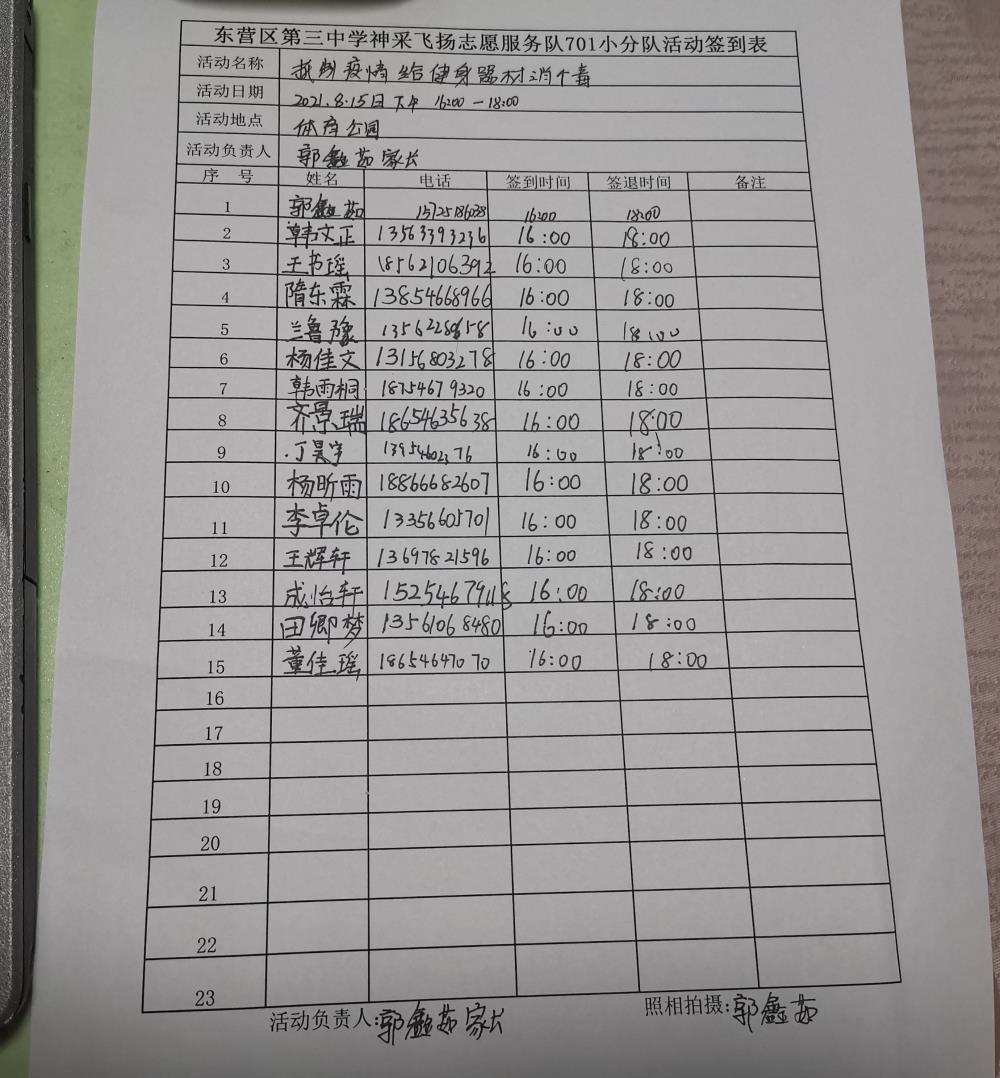 东营区第三中学神采飞扬志愿服务队701小分队活动签到表
活动名称 抵制疫情 给健身器材消个毒
活动日期 2021.8.15日下午 16:00-18:00
活动地点 体育公园
活动负责人 郭鑫茹家长
序 号 姓名 电话 签到时间 签退时间 备注
1 郭鑫茹 15725186038 16:00 18:00
2 韩文正 13563393236 16:00 18:00
3 王书瑶 18562106392 16:00 18:00
4 隋东霖 13854668966 16:00 18:00
5 兰鲁豫 13562280658 16:00 18:00
6 杨佳文 13156803278 16:00 18:00
7 韩雨桐 18754679320 16:00 18:00
8 齐景瑞 18654635638 16:00 18:00
9 丁昊宇 13954602376 16:00 18:00
10 杨昕雨 18866682607 16:00 18:00
11 李卓伦 13356605701 16:00 18:00
12 王辉轩 13697821596 16:00 18:00
13 成怡轩 16:00 18:00
14 田卿梦 13561068480 16:00 18:00
15 董佳瑶 18654647070 16:00 18:00
16
17
18
19
20
21
22
23
活动负责人:郭鑫茹家长 照相拍摄:郭鑫茹